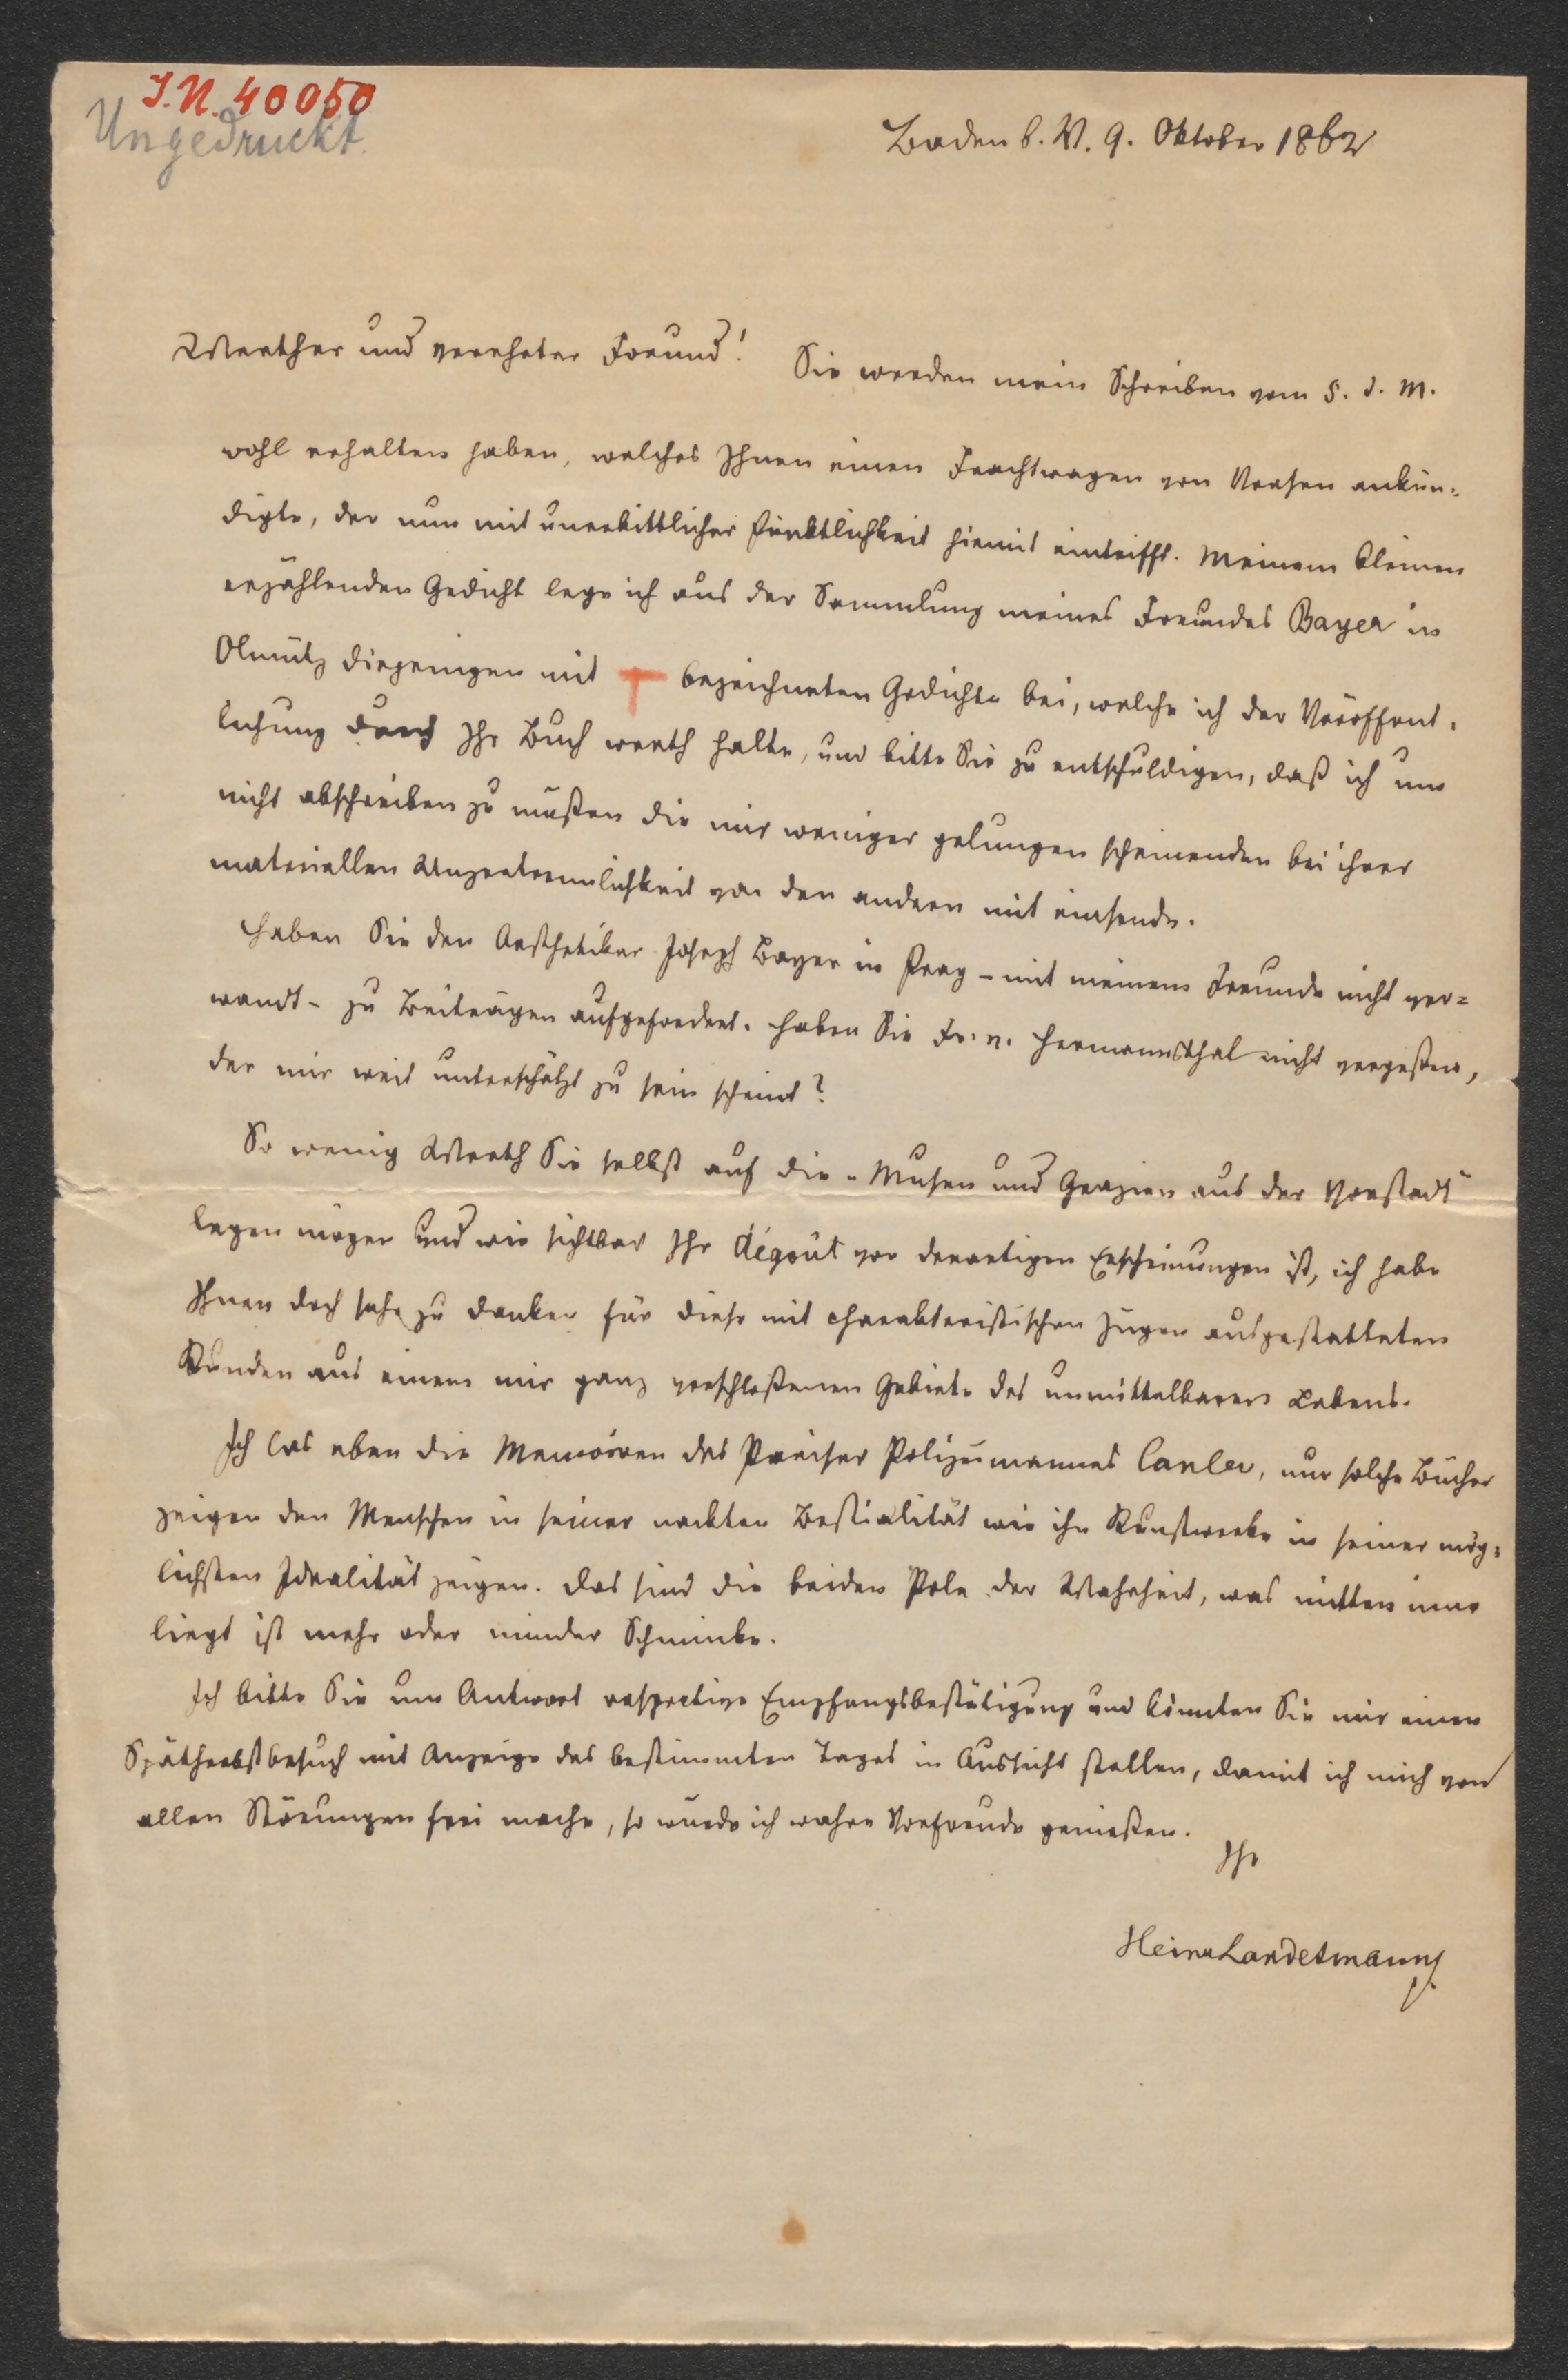 I.N. 40050
Ungedruckt.
Baden b. W. 9. Oktober 1862
Werther und verehrter Freund!
Sie werden mein Schreiben vom 5. d. M.
wohl erhalten haben, welches Ihnen einen Frachtwagen von Versen ankün-
digte, der nun mit unerbittlicher Pünktlichkeit hiemit eintrifft. Meinem kleinen
erzählenden Gedicht lege ich aus der Sammlung meines Freundes Bayer in
Olmütz diejenigen mit + bezeichneten Gedichte bei, welche ich der Veröffent-
lichung durch Ihr Buch werth halte, und bitte Sie zu entschuldigen, daß ich um
nicht abschreiben zu müßen die mir weniger gelungen scheinenden bei ihrer
materiellen Unzertrennlichkeit von den andern mit einsende.
Haben Sie den Aesthetiker Joseph Bayer in Prag – mit meinem Freunde nicht ver-
wandt – zu Beiträgen aufgefordert. Haben Sie Fr. v. Hermannsthal nicht vergeßen,
der mir weit unterschätzt zu sein scheint?
So wenig Werth Sie selbst auf die "Musen und Grazien aus der Vorstadt"
legen mögen und wie sichtbar Ihr dégoût vor derartigen Erscheinungen ist, ich habe
Ihnen doch sehr zu danken für diese mit charakteristischen Zügen ausgestatteten
Kunden aus einem mir ganz verschloßenen Gebiete des unmittelbaren Lebens.
Ich las eben die Memoiren des Pariser Polizeimannes Canler, nur solche Bücher
zeigen den Menschen in seiner nackten Bestialität wie ihn Kunstwerke in seiner mög-
lichsten Idealität zeigen. Das sind die beiden Pole der Wahrheit, was mitten inne
liegt ist mehr oder minder Schminke.
Ich bitte Sie um Antwort respective Empfangsbestätigung und könnten Sie mir einen
Spätherbstbesuch mit Anzeige des bestimmten Tages in Aussicht stellen, damit ich mich von
allen Störungen frei mache, so würde ich wahre Vorfreude genießen.
Ihr
Heinr Landesmann